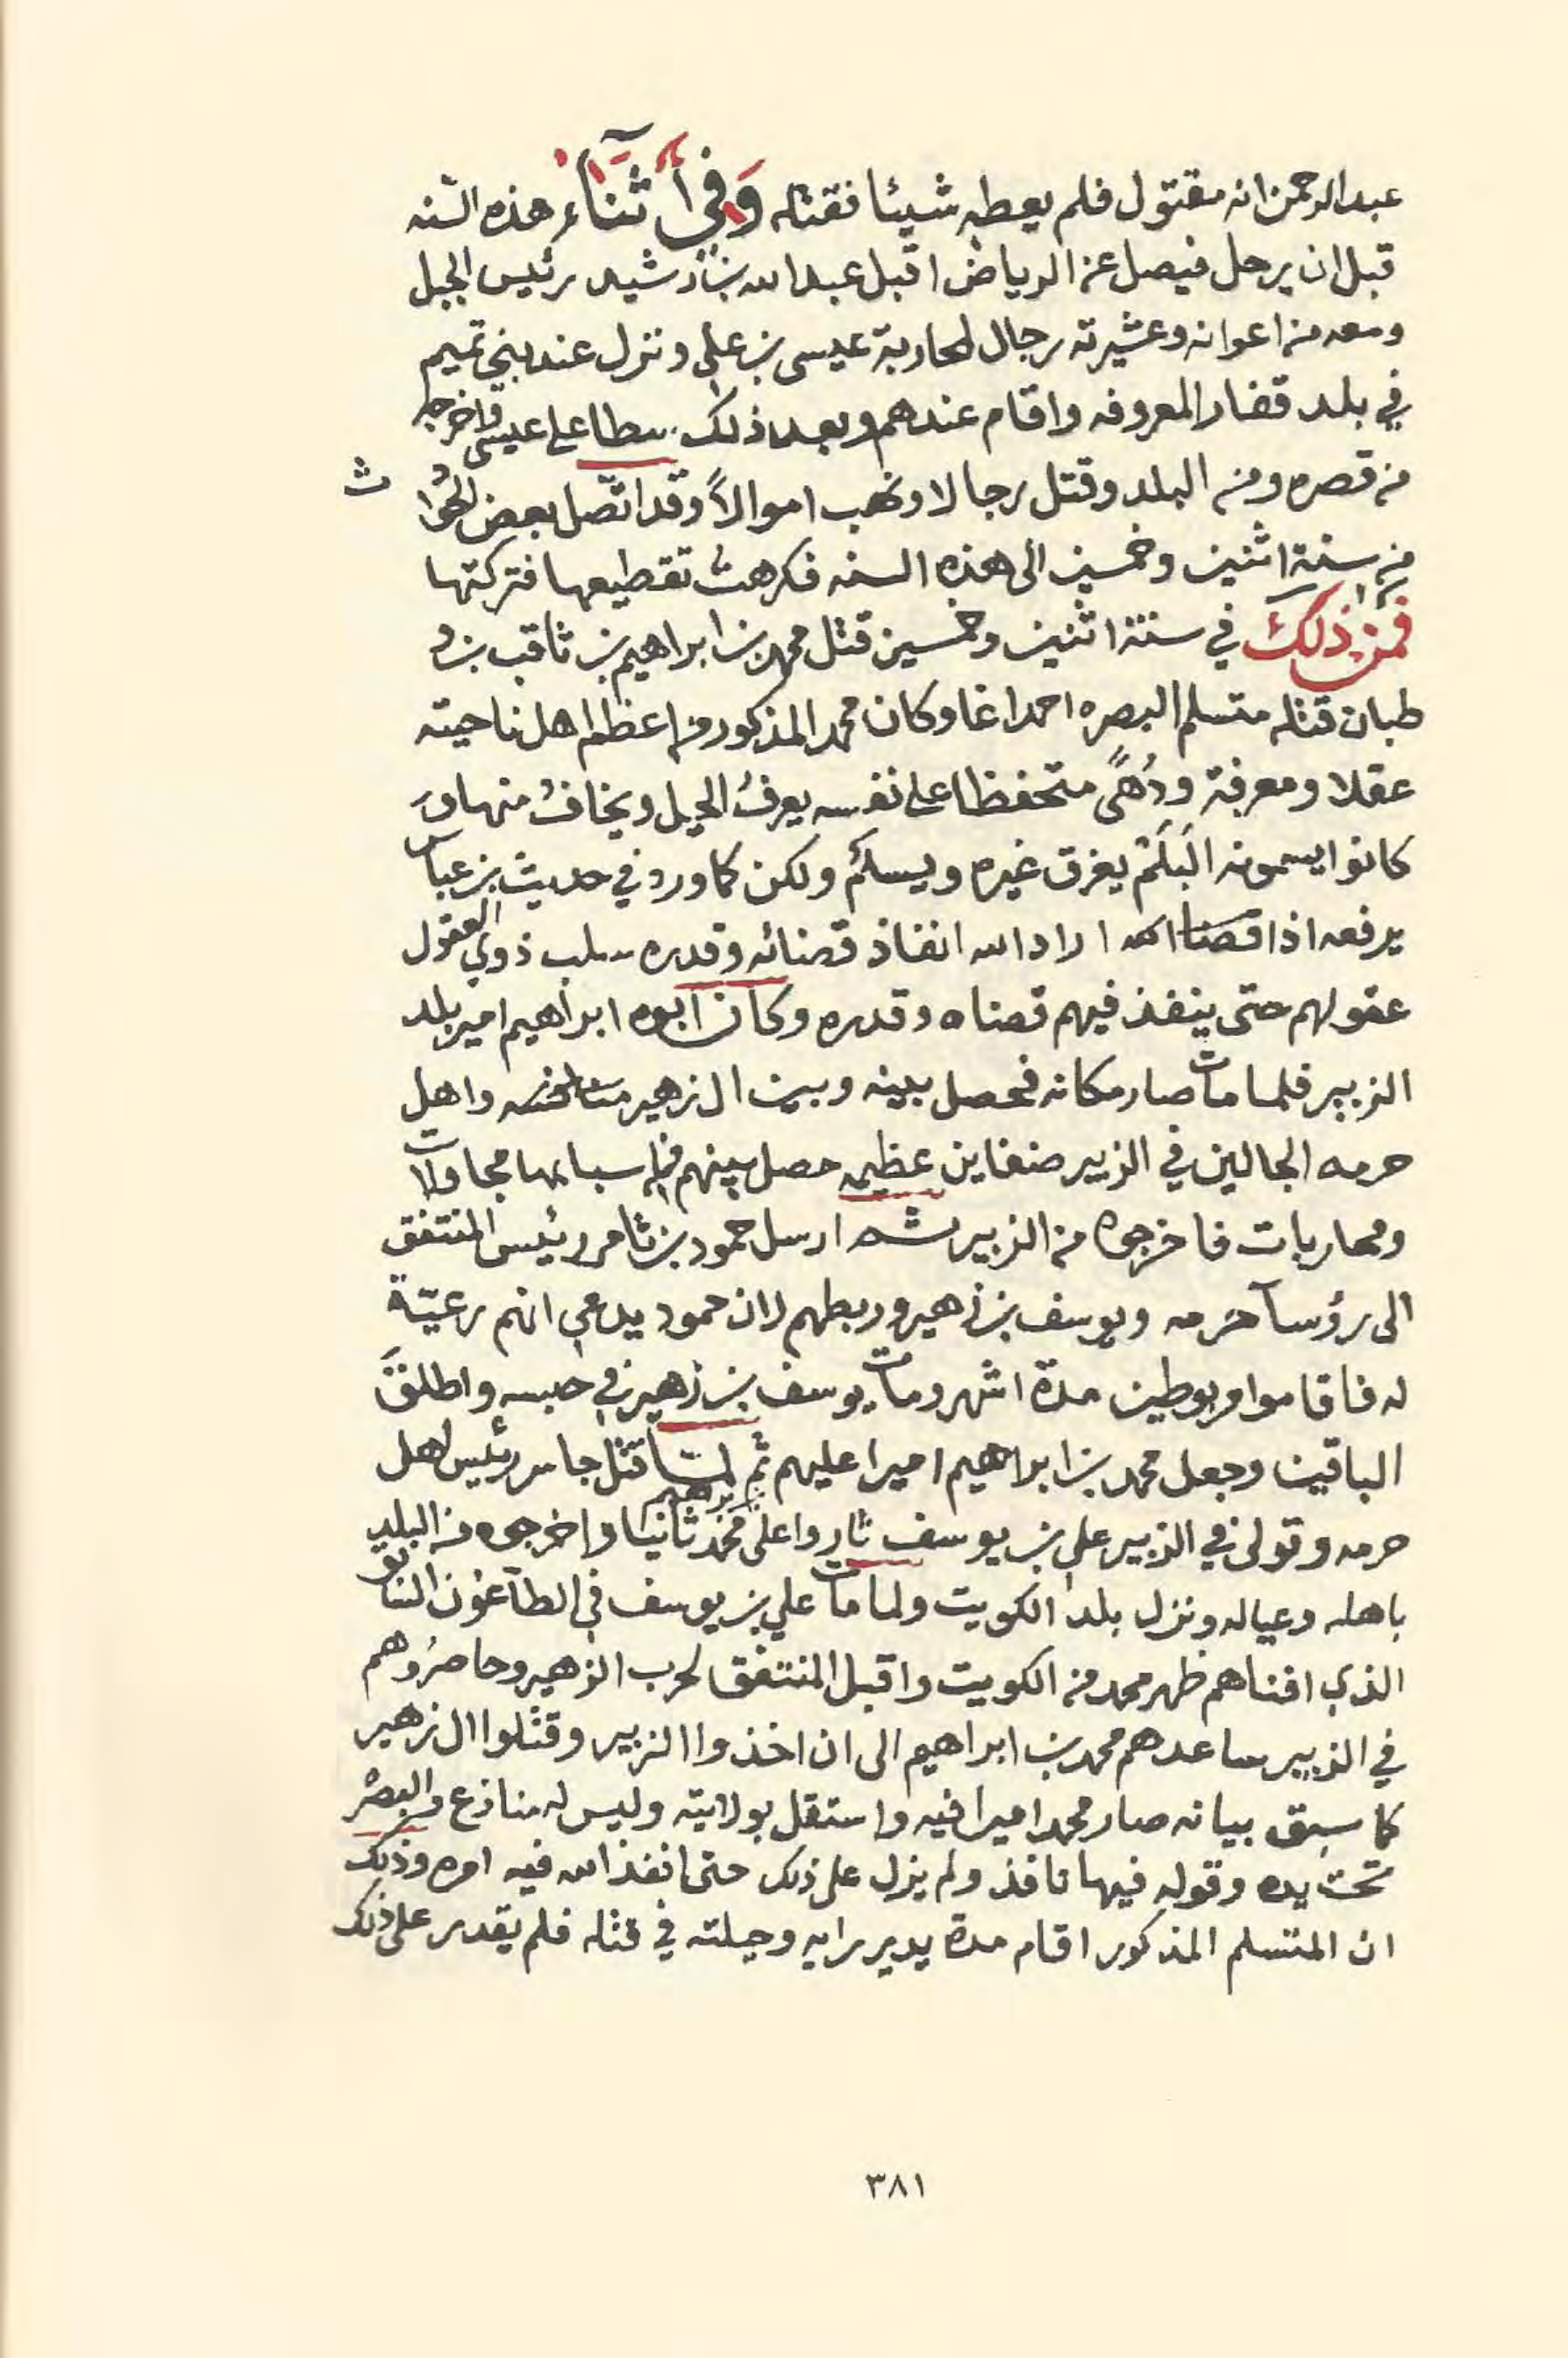 عبدالرحمن انه مقتول فلم يعطه شيئا فقتله وَفِي أَثْنَآءِ هذه السّنه
قبل ان يرحل فيصل عن الرياض اقبل عبدالله بن رشيد رئيس الجبل
ومعه من اعوانه وعشيرته رجال لمحاربة عيسى بن علي ونزل عند بني تميم
في بلد قفار المعروفه واقام عندهم وبعد ذلك سطا على عيسى واخرجه
من قصره ومن البلد وقتل رجالا ونهب اموالاً وقد اتّصل بعض الحوا
ث
من سنة اثنين وخمسين الى هذه السنه فكرهت تقطيعها فتركتها
فمن ذلك في سنة اثنين وخمسين قتل محمد بن ابراهيم بن ثاقب بن و
طبان قتله متسلم البصره احمد اغا وكان محمد المذكور من اعظم اهل ناحيته
عقلا ومعرفة ودُهىً متحفظا على نفسه يعرفُ الحيل ويخافُ منها وَ
كانوا يسمونه البَلَمْ يغرق غيره ويسلمُ ولكن كما ورد في حديث بن عباس
يرفعه اذا اراد الله انفاذ قضائه وقدره سلب ذوي العقول
عقولهم حتى ينفذ فيهم قضاه وقدره وكان ابوه ابراهيم امير بلد
الزبير فلما مات صار مكانه فحصل بينه وبين ال زهير واهل
حرمه الجالين في الزبير ضغاين عظيمه حصل بينهم من اسبابها مجاولات
ومحاربات فاخرجوه من الزبير ثم ارسل حمود بن ثامر رئيس المنتفق
الى رؤسآ حرمه ويوسف بن زهير وربطهم لان حمود يدعي انهم رعيّة
له فاقاموا مربوطين مدة اشهر ومات يوسف بن زهير في حبسه واطلقَ
الباقين وجعل محمد بن ابراهيم اميرا عليهم ثم لما قتل جاسر رئيس اهل
حرمه وتولى في الزبير علي بن يوسف ثاروا على محمد بن ابراهيم ثانيا واخرجوه من البلد
باهله وعياله ونزل بلد الكويت ولما مات علي بن يوسف في الطآعون السابق
الذي افناهم ظهر محمد من الكويت واقبل المنتفق لحرب الزهير وحاصرُوهم
في الزبير ساعدهم محمد بن ابراهيم الى ان اخذوا الزبير وقتلوا ال زهير
كما سبق بيانه صار محمد اميرا فيه واستقل بولايته وليس له منازع والبصره
تحت يده وقوله فيها نافذ ولم يزل على ذلك حتى انفذ الله فيه امره وذلك
ان المتسلم المذكور اقام مدة يدير رايه وحيلته في قتله فلم يقدر على ذلك
٣٨١